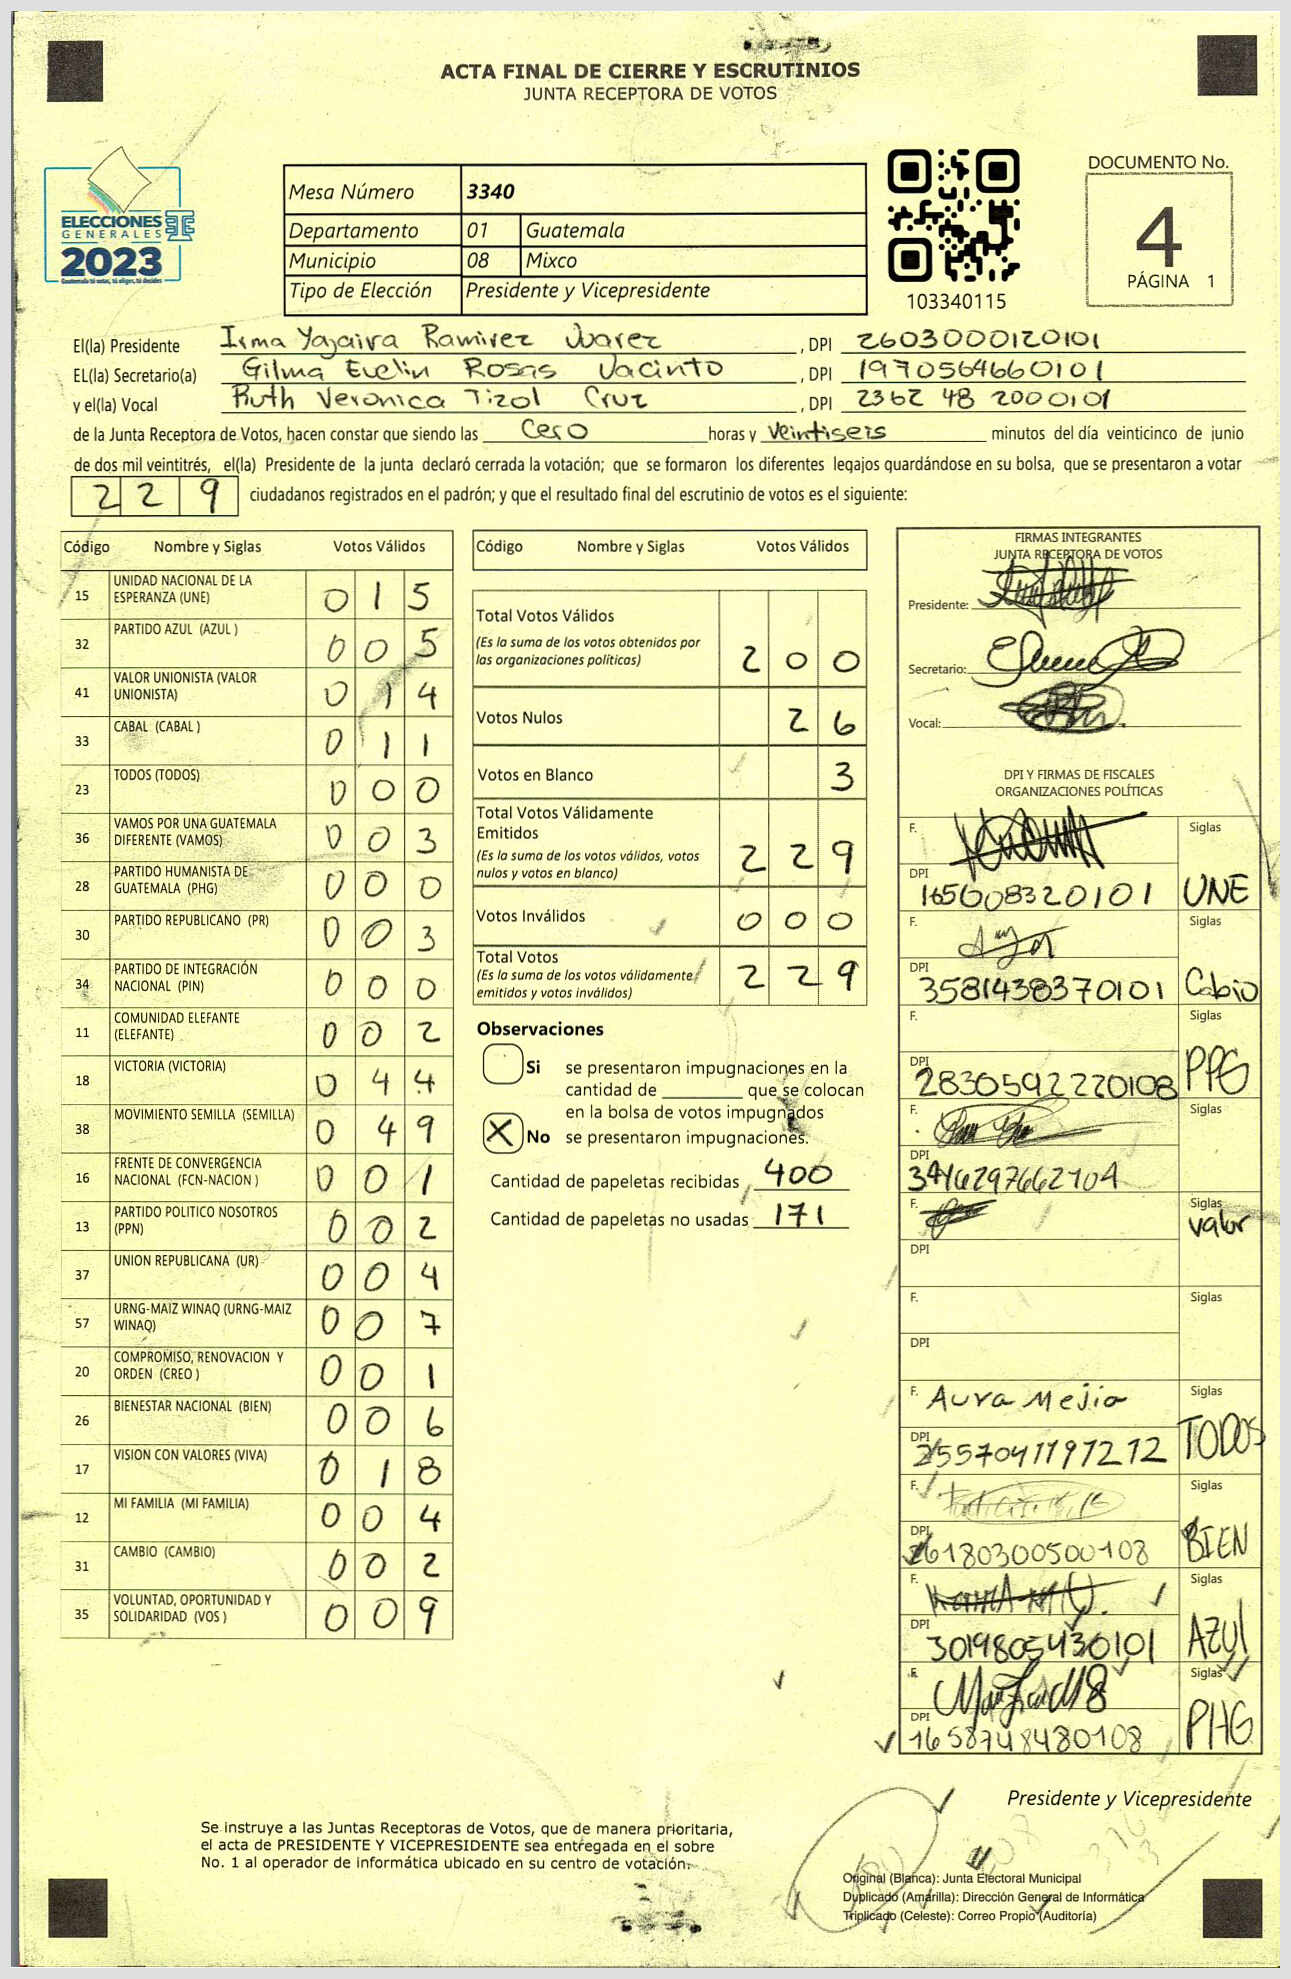 ACTA FINAL DE CIERRE Y ESCRUTINIOS
JUNTA RECEPTORA DE VOTOS
ELECCIONES
GENERALES
2023
Guatemala tú votas, tú eliges, tú decides
Mesa Número 3340
Departamento 01 Guatemala
Municipio 08 Mixco
Tipo de Elección Presidente y Vicepresidente
103340115
DOCUMENTO No.
4
PÁGINA 1
El(la) Presidente Irma Yajaira Ramirez Juarez, DPI 2603000120101
EL(la) Secretario(a) Gilma Evelin Rosas Jacinto, DPI 1970564660101
y el(la) Vocal Ruth Veronica Tizol Cruz, DPI 2362 48 2000101
de la Junta Receptora de Votos, hacen constar que siendo las Cero horas y Veintiseis minutos del día veinticinco de junio
de dos mil veintitrés, el(la) Presidente de la junta declaró cerrada la votación; que se formaron los diferentes legajos guardándose en su bolsa, que se presentaron a votar
229 ciudadanos registrados en el padrón; y que el resultado final del escrutinio de votos es el siguiente:
Código Nombre y Siglas Votos Válidos
15 UNIDAD NACIONAL DE LA ESPERANZA (UNE) 015
32 PARTIDO AZUL (AZUL ) 005
41 VALOR UNIONISTA (VALOR UNIONISTA) 014
33 CABAL (CABAL ) 011
23 TODOS (TODOS) 000
36 VAMOS POR UNA GUATEMALA DIFERENTE (VAMOS) 003
28 PARTIDO HUMANISTA DE GUATEMALA (PHG) 000
30 PARTIDO REPUBLICANO (PR) 003
34 PARTIDO DE INTEGRACIÓN NACIONAL (PIN) 000
11 COMUNIDAD ELEFANTE (ELEFANTE) 002
18 VICTORIA (VICTORIA) 044
38 MOVIMIENTO SEMILLA (SEMILLA) 049
16 FRENTE DE CONVERGENCIA NACIONAL (FCN-NACION ) 001
13 PARTIDO POLITICO NOSOTROS (PPN) 002
37 UNION REPUBLICANA (UR) 004
57 URNG-MAIZ WINAQ (URNG-MAIZ WINAQ) 007
20 COMPROMISO, RENOVACION Y ORDEN (CREO ) 001
26 BIENESTAR NACIONAL (BIEN) 006
17 VISION CON VALORES (VIVA) 018
12 MI FAMILIA (MI FAMILIA) 004
31 CAMBIO (CAMBIO) 002
35 VOLUNTAD, OPORTUNIDAD Y SOLIDARIDAD (VOS ) 009
Código Nombre y Siglas Votos Válidos
Total Votos Válidos
(Es la suma de los votos obtenidos por
las organizaciones políticas) 200
Votos Nulos 26
Votos en Blanco 3
Total Votos Válidamente
Emitidos
(Es la suma de los votos válidos, votos
nulos y votos en blanco) 229
Votos Inválidos 000
Total Votos
(Es la suma de los votos válidamente
emitidos y votos inválidos) 229
Observaciones
Si se presentaron impugnaciones en la
cantidad de ________ que se colocan
en la bolsa de votos impugnados
X No se presentaron impugnaciones.
Cantidad de papeletas recibidas 400
Cantidad de papeletas no usadas 171
FIRMAS INTEGRANTES
JUNTA RECEPTORA DE VOTOS
Presidente:
Secretario:
Vocal:
DPI Y FIRMAS DE FISCALES
ORGANIZACIONES POLÍTICAS
F. Siglas
DPI 165608320101 UNE
F. Siglas
DPI 3581438370101
F. Siglas
DPI 2830592220108 PPG
F. Siglas
DPI 3416297662104
F. Siglas
valor
DPI
F. Siglas
DPI
F. Aura Mejia Siglas
DPI 2557041197272 TODOS
F. Siglas
DPI 26180300500108 BIEN
F. Siglas
DPI 3019805430101 AZUL
F. Siglas
DPI 1658748480108 PHG
Presidente y Vicepresidente
Se instruye a las Juntas Receptoras de Votos, que de manera prioritaria,
el acta de PRESIDENTE Y VICEPRESIDENTE sea entregada en el sobre
No. 1 al operador de informática ubicado en su centro de votación.
Original (Blanca): Junta Electoral Municipal
Duplicado (Amarilla): Dirección General de Informática
Triplicado (Celeste): Correo Propio (Auditoría)